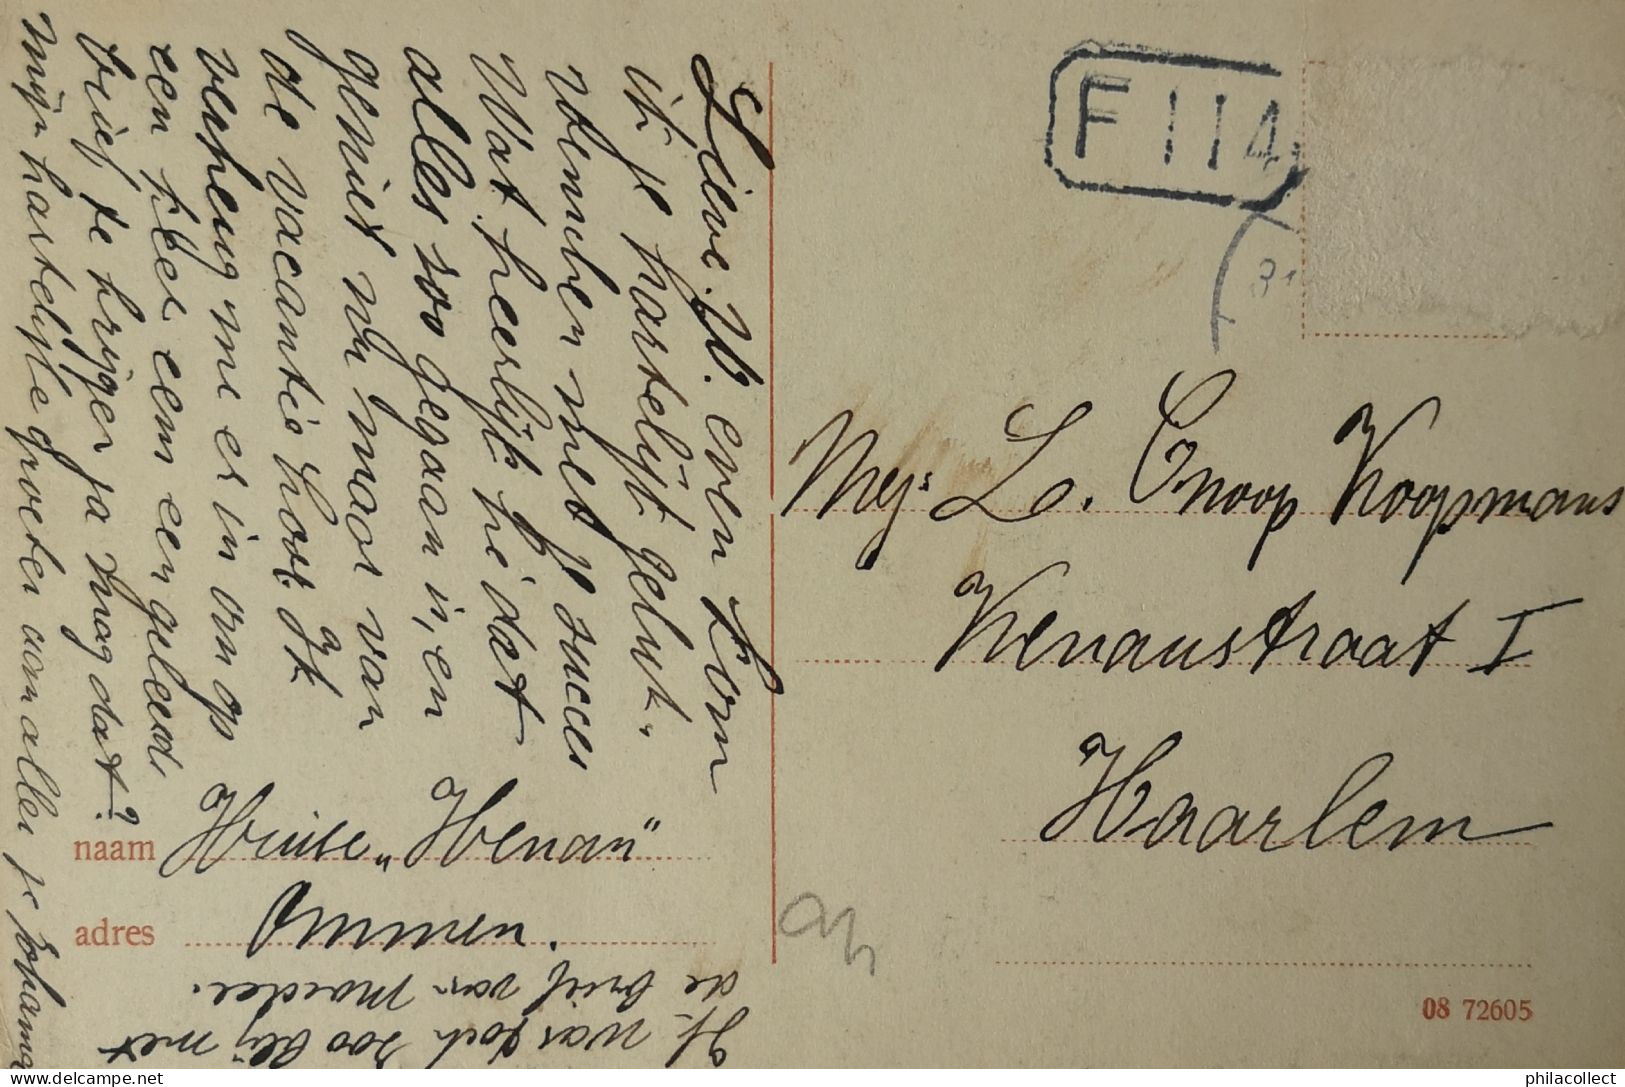 Lieve M. even kom
ik je hartelijk geluk-
wenschen met je succes
Wat heerlijk hè dat
alles zoo gegaan is, en
geniet nu maar van
de vacantie hoor. Ik
verheug me er in om op
een keer eem een geleend
brief te krijgen ja mag dat?
mijn hartelijke groeten aan allen je Johanna
naam Huise „Henan"
adres Ommen.
Ik was toch zoo blij met
de brief van Moedee.
F 114
Mej: L. Cnoop Koopmans
Kenaustraat I
Haarlem
08 72605
philacollect